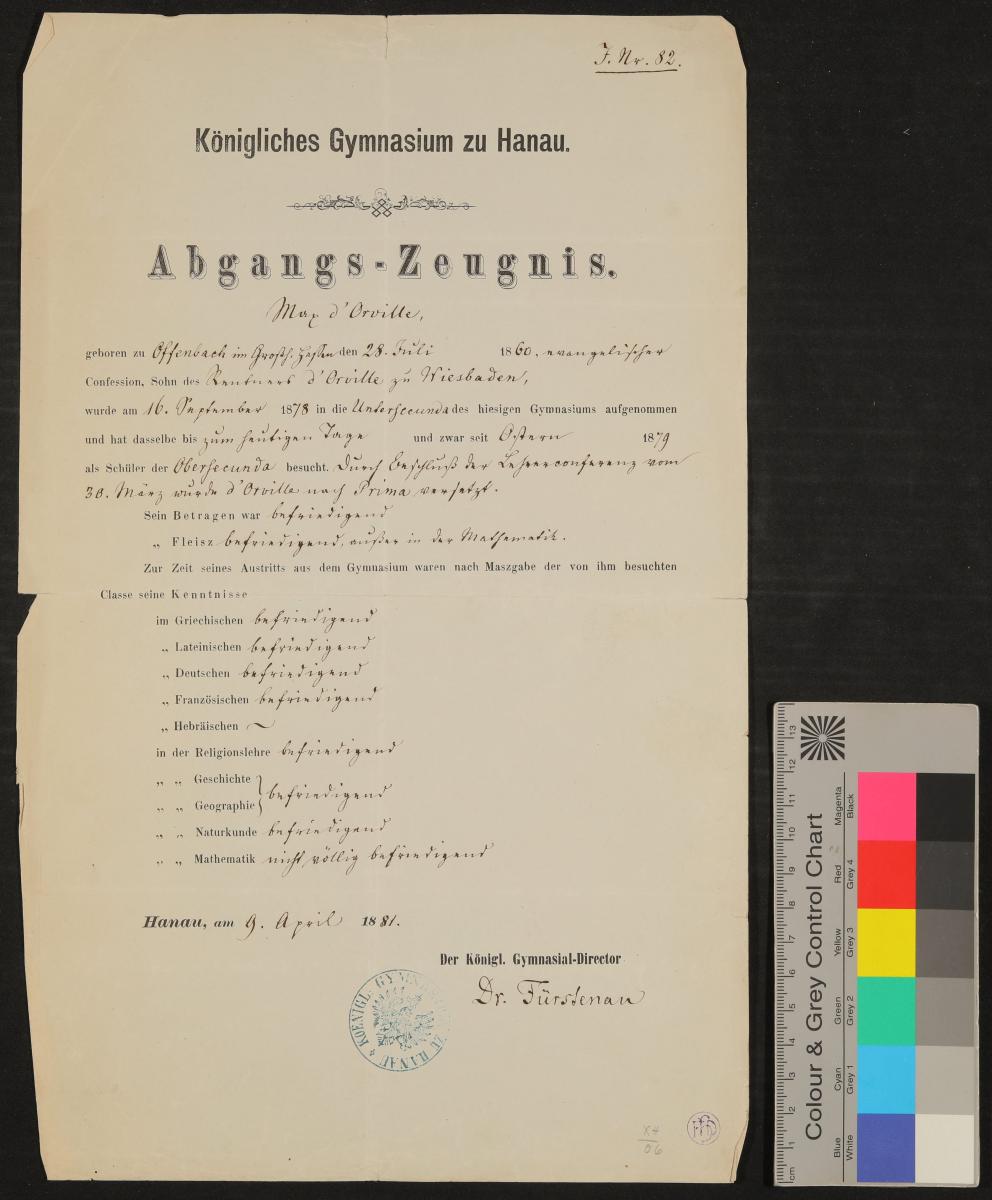 J. Nr. 82.
Königliches Gymnasium zu Hanau.
Abgangs-Zeugnis.
Max d'Orville,
geboren zu Offenbach im Grossh. Hessen den 28. Juli 1860, evangelischer
Confession, Sohn des Rentners d'Orville zu Wiesbaden,
wurde am 16. September 1878 in die Untersecunda des hiesigen Gymnasiums aufgenommen
und hat dasselbe bis zum heutigen Tage und zwar seit Ostern 1879
als Schüler der Obersecunda besucht. Durch Beschluß der Lehrerconferenz vom
30. März wurde d'Orville nach Prima versetzt.
Sein Betragen war befriedigend
„ Fleisz befriedigend, außer in der Mathematik.
Zur Zeit seines Austritts aus dem Gymnasium waren nach Maszgabe der von ihm besuchten
Classe seine Kenntnisse
im Griechischen befriedigend
„ Lateinischen befriedigend
„ Deutschen befriedigend
„ Französischen befriedigend
„ Hebräischen ~
in der Religionslehre befriedigend
„ „ Geschichte
„ „ Geographie } befriedigend
„ „ Naturkunde befriedigend
„ „ Mathematik nicht völlig befriedigend
Hanau, am 9. April 1881.
Der Königl. Gymnasial-Director
Dr. Fürstenau
KOENIGL. GYMNASIUM ZU HANAU
X4
06
Colour & Grey Control Chart
Blue Cyan Green Yellow Red Magenta
White Grey 1 Grey 2 Grey 3 Grey 4 Black
cm 1 2 3 4 5 6 7 8 9 10 11 12 13